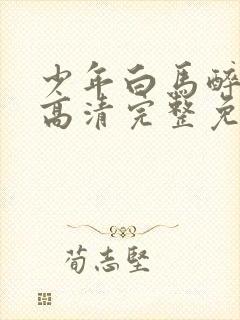 少年白馬醉
高清完整免
荀志堅